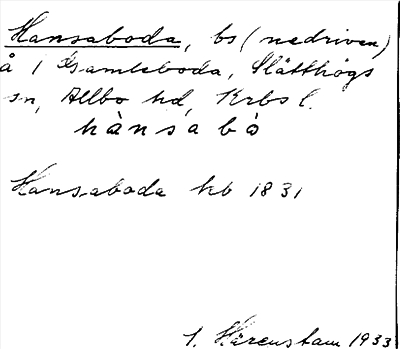 Hansaboda, bs (nedriven)
å 1 Gamleboda, Slätthögs
sn, Allbo hd, Krbs l.
hànsabò
Hansaboda hb 1831
Härenstam 1933